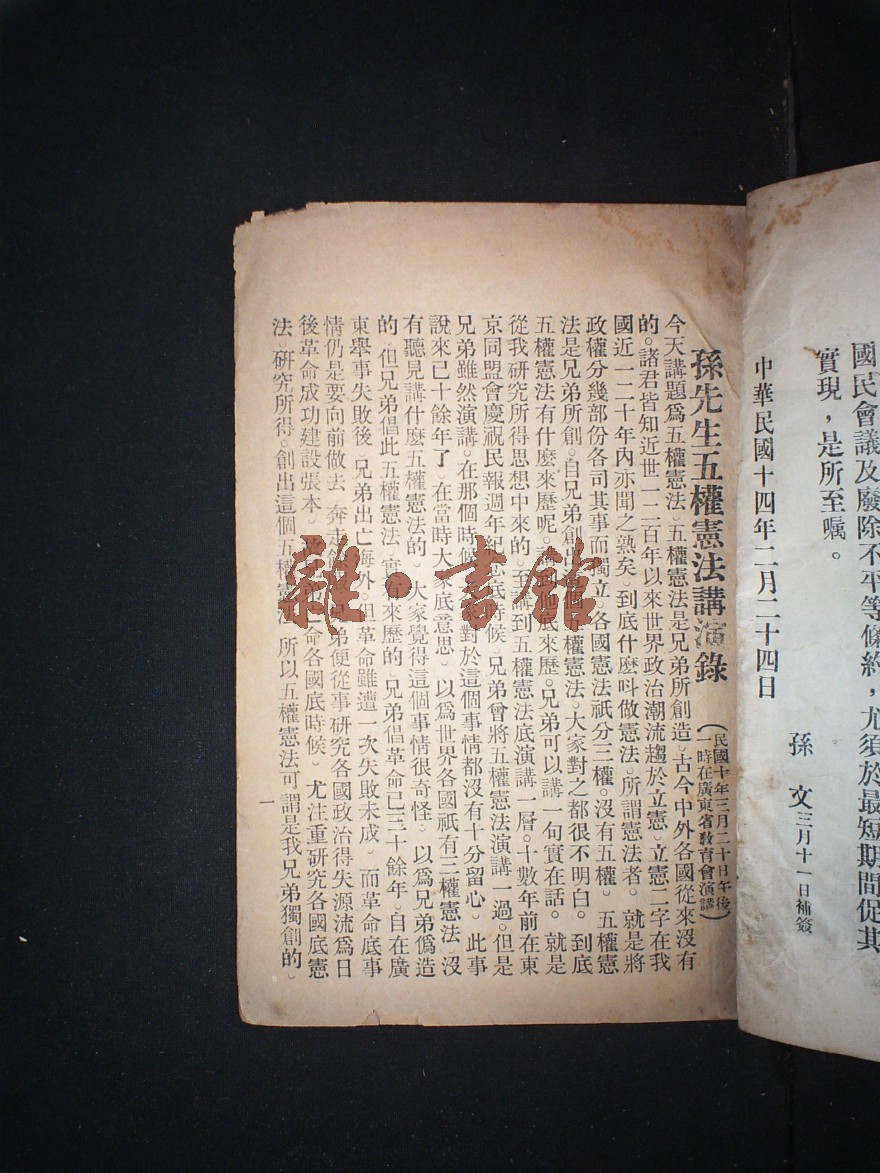 國民會議及廢除不平等條約，尤須於最短期間促其
實現，是所至囑。
中華民國十四年二月二十四日
孫　文 三月十一日補簽
孫先生五權憲法講演錄
（民國十年三月二十日午後
一時在廣東省敎育會演講）
今天講題爲五權憲法。五權憲法是兄弟所創造。古今中外各國從來沒有
的。諸君皆知近世一二百年以來世界政治潮流趨於立憲。立憲二字在我
國近一二十年內亦聞之熟矣。到底什麽呌做憲法。所謂憲法者。就是將
政權分幾部份各司其事而獨立。各國憲法祇分三權。沒有五權。五權憲
法是兄弟所創。自兄弟創出 權憲法。大家對之都很不明白。到底
五權憲法有什麽來歷呢。 底來歷。兄弟可以講一句實在話。就是
從我研究所得思想中來的。至講到五權憲法底演講一層。十數年前在東
京同盟會慶祝民報週年紀 底時候。兄弟曾將五權憲法演講一過。但是
兄弟雖然演講。在那個時 對於這個事情都沒有十分留心。此事
說來已十餘年了。在當時大 底意思。以爲世界各國祇有三權憲法。沒
有聽見講什麽五權憲法的。大家覺得這個事情很奇怪。以爲兄弟僞造
的。但兄弟倡此五權憲法。實有來歷的。兄弟倡革命已三十餘年。自在廣
東舉事失敗後。兄弟出亡海外。但革命雖遭一次失敗未成。而革命底事
情仍是要向前做去。奔走 弟便從事研究各國政治得失源流爲日
後革命成功建設張本。故 亡命各國底時候。尤注重研究各國底憲
法。研究所得。創出這個五權憲法。所以五權憲法可謂是我兄弟獨創的。
一
雜·書館